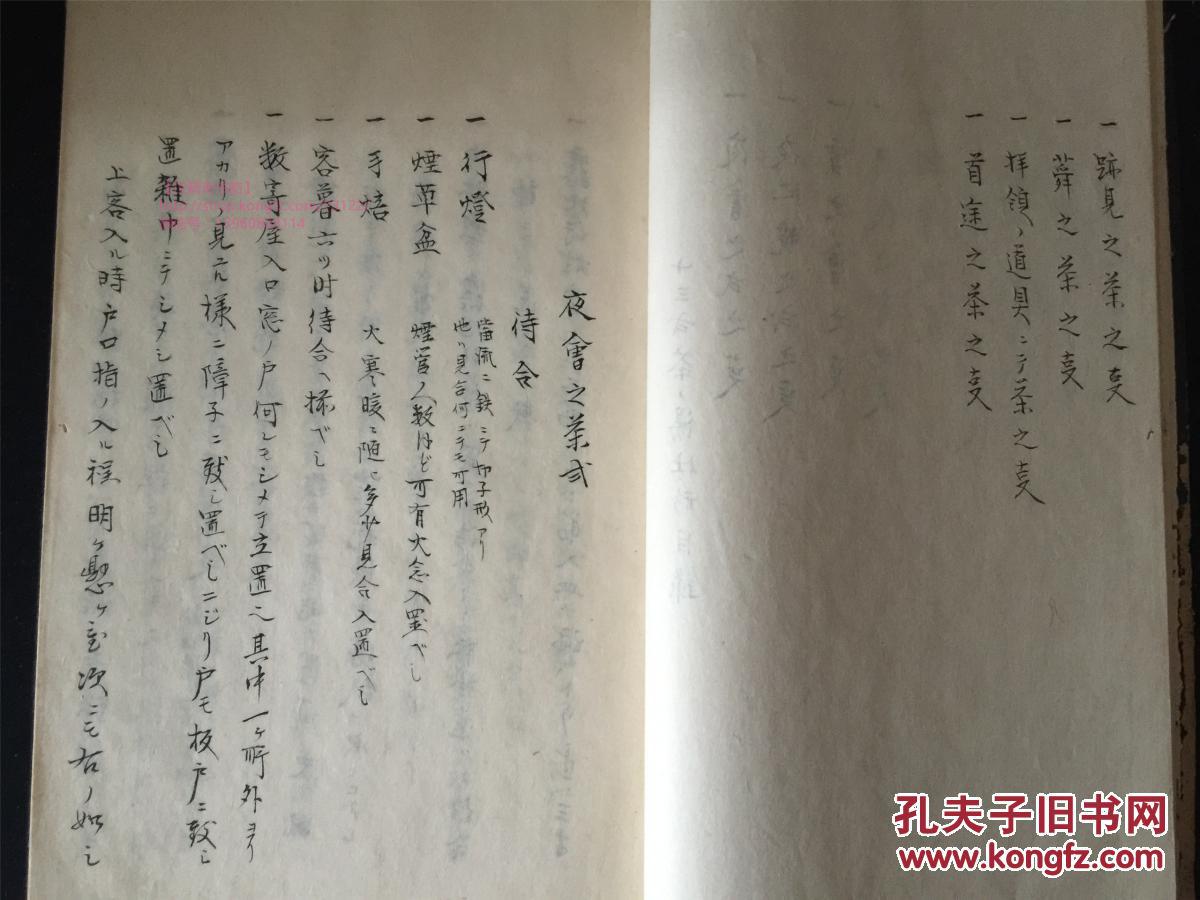 一 跡見之茶之叓
一 蕣之茶之叓
一 拝領ノ道具ニテ茶之叓
一 首途之茶之叓
夜會之茶式
待合
一 行燈 當流ニ鉄ニテ切子形アリ
他ハ見合何ニテモ可用
一 煙草盆 煙管人数ほど可有火念入置べし
一 手焙 大寒暖ニ随ヒ多少見合入置べし
一 客暮六ツ时待合ヘ揃べし
一 数寄屋入口窓ノ戸何レモシメテ立置也其中一ヶ所外ヨリ
アカリノ見ユル様ニ障子ニ致シ置べしニジリ戸モ板戸ニ致シ
置雑巾ニテシメシ置べし
上客入ル時戸口指ノ入ル程明ヶ懸ヶ置次ニモ右ノ如シ
孔夫子旧书网
www.kongfz.com